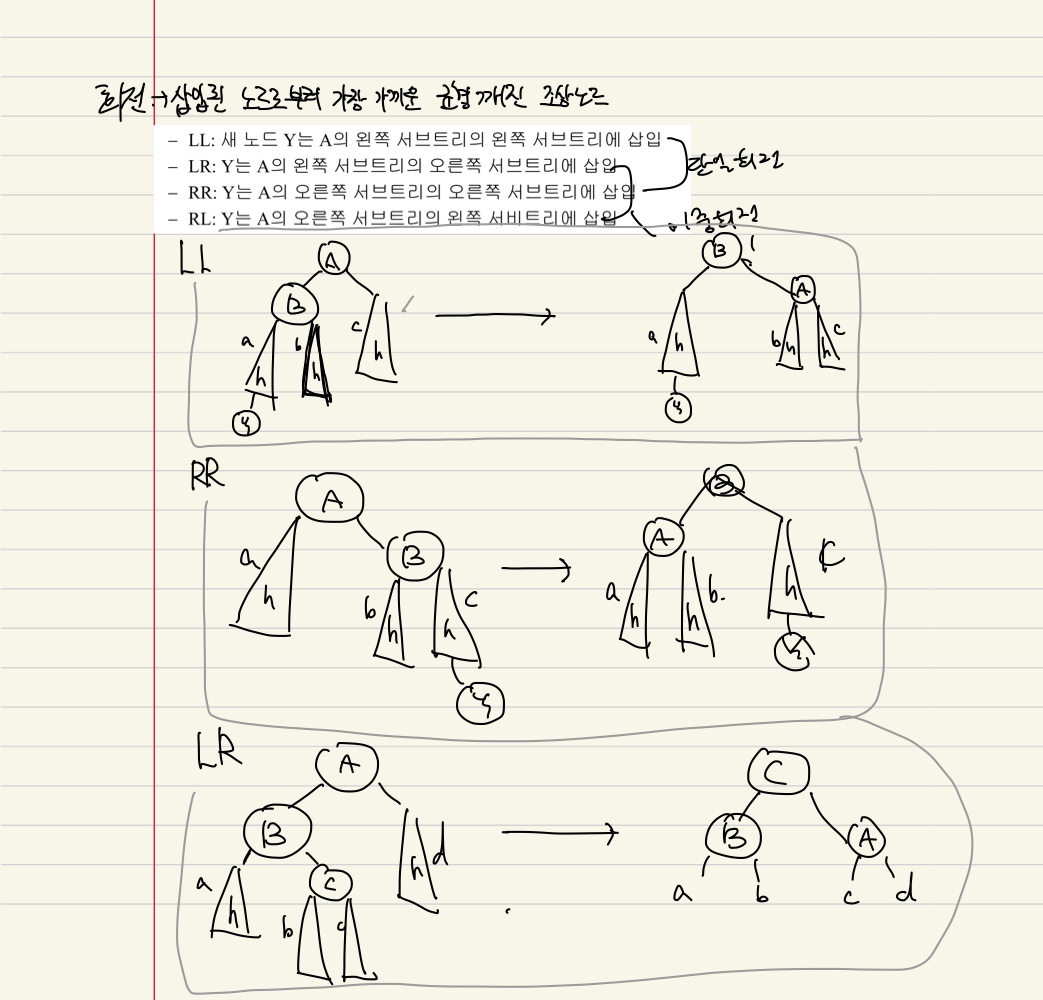 회전 → 삽입된 노드로부터 가장 가까운 균형 깨진 조상노드
– LL: 새 노드 Y는 A의 왼쪽 서브트리의 왼쪽 서브트리에 삽입
– LR: Y는 A의 왼쪽 서브트리의 오른쪽 서브트리에 삽입
단일회전
– RR: Y는 A의 오른쪽 서브트리의 오른쪽 서브트리에 삽입
– RL: Y는 A의 오른쪽 서브트리의 왼쪽 서비트리에 삽입
이중회전
LL
A
B
a h
b h
c h
Y
B
A
a h
b h
h c
Y
RR
A
B
a h
b h
h c
Y
B
A
a h
h b.
h C
Y
LR
A
B
C
a h
b
c
h d
C
B A
a b c d